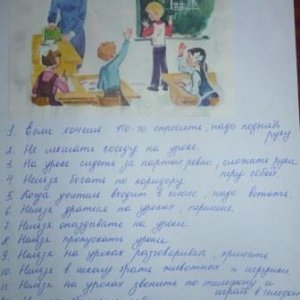 1. Если хочешь что-то спросить, надо поднять
руку
2. Не мешать соседу на уроке.
3. На уроке сидеть за партой ровно, сложить руки
перед собой.
4. Нельзя бегать по коридору.
5. Когда учитель входит в класс, надо встать.
6. Нельзя драться на уроках, перемене.
7. Нельзя опаздывать на уроки.
8. Нельзя пропускать уроки.
9. Нельзя на уроках разговаривать, кричать
10. Нельзя в школу брать животных и игрушки.
11. Нельзя на уроках звонить по телефону и
играть в телефон